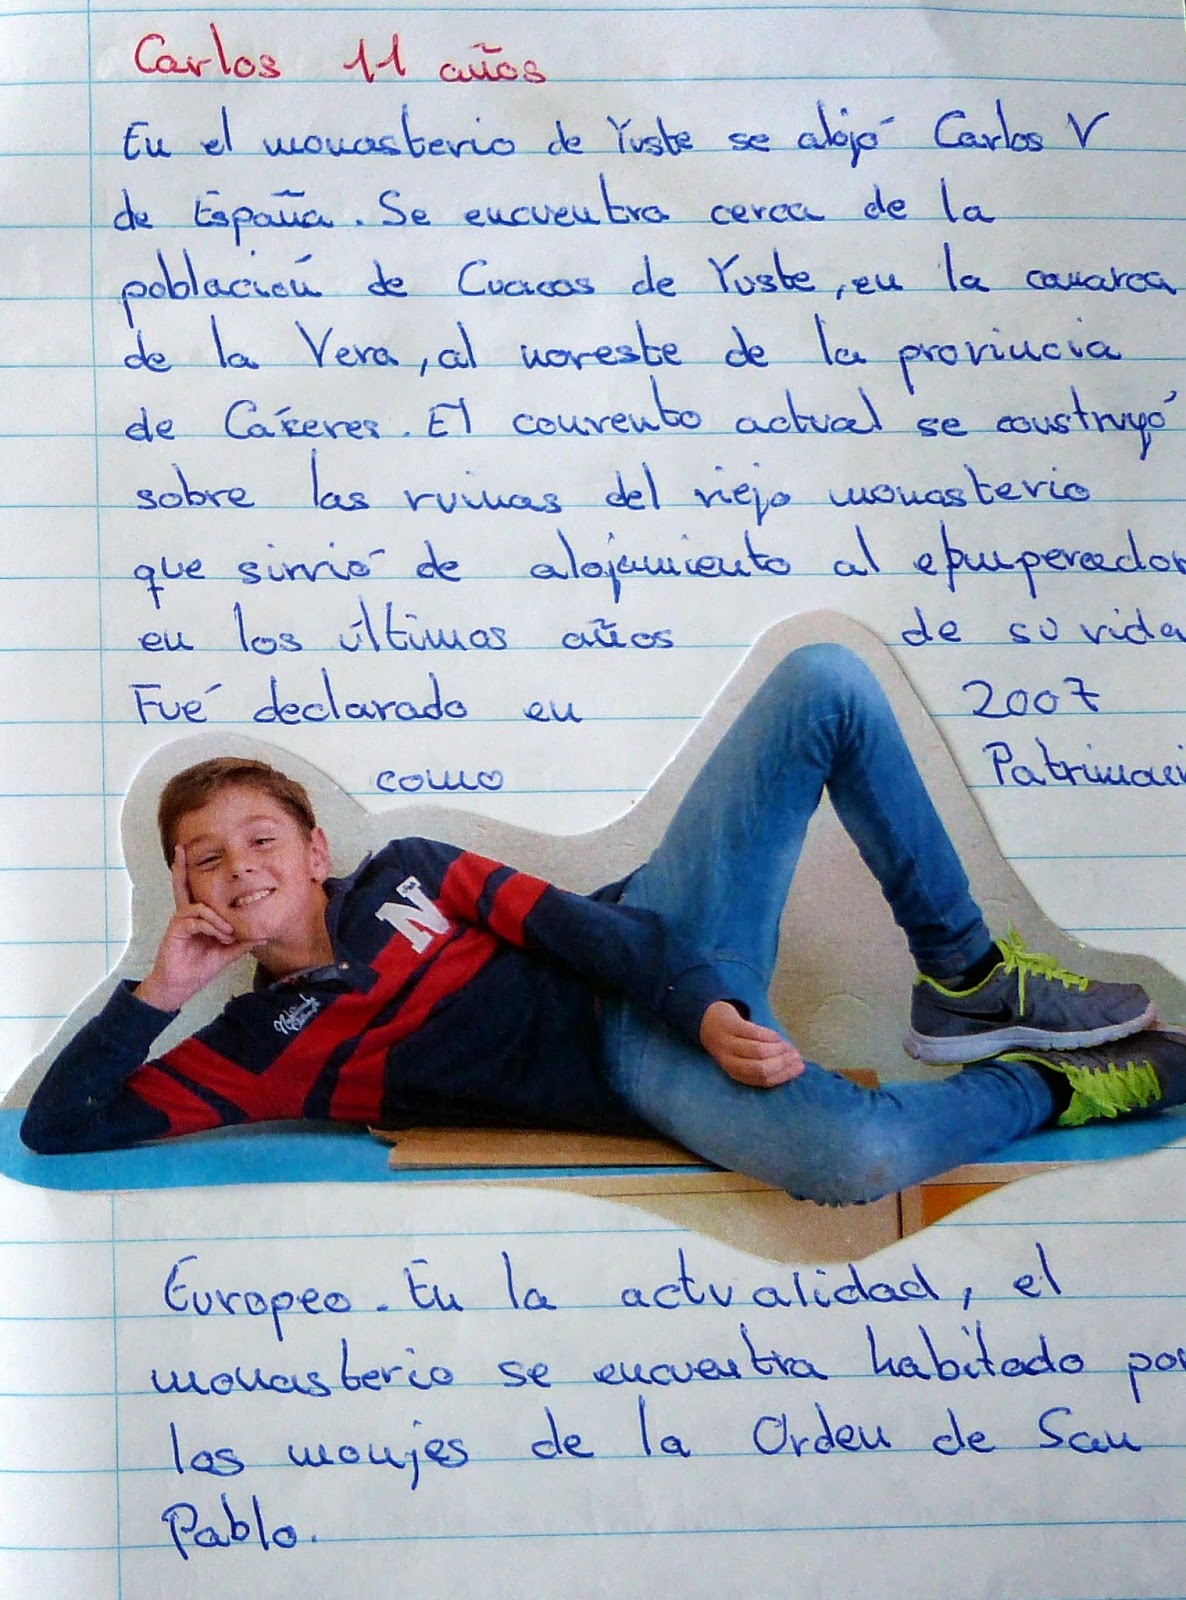 Carlos 11 años
En el monasterio de Yuste se alojó Carlos V
de España. Se encuentra cerca de la
población de Cuacos de Yuste, en la comarca
de la Vera, al noreste de la provincia
de Cáceres. El convento actual se construyó
sobre las ruinas del viejo monasterio
que sirvió de alojamiento al emperador
en los últimos años de su vida
Fué declarado en 2007
como Patrimoni
N
Europeo. En la actualidad, el
monasterio se encuentra habitado por
los monjes de la Orden de San
Pablo.